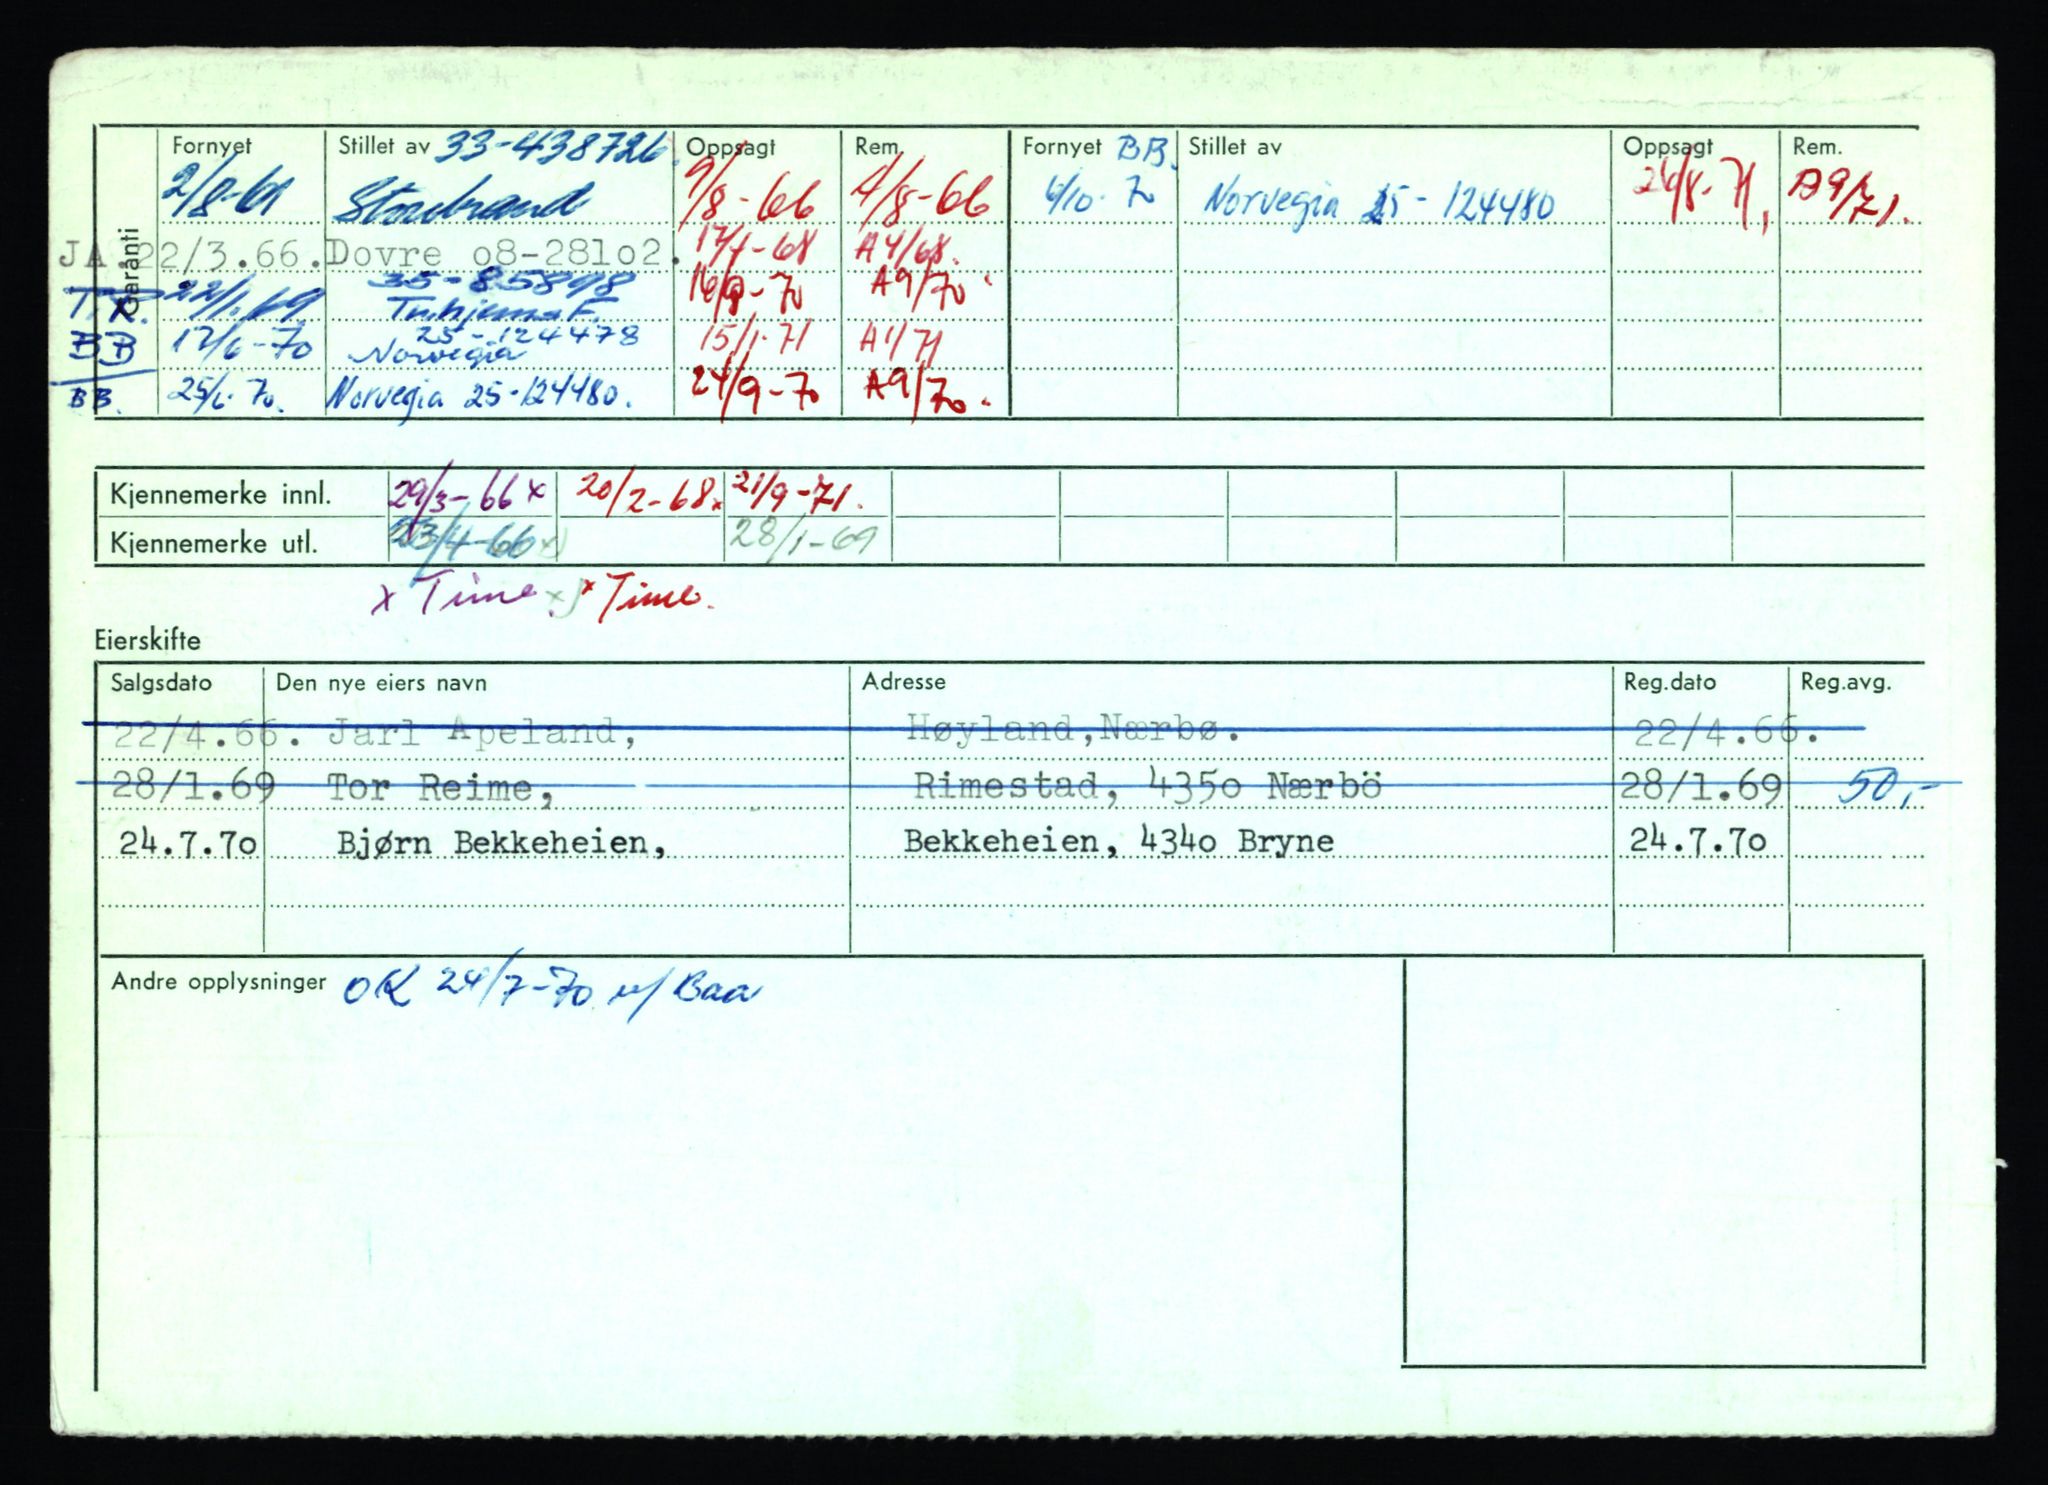 Garanti
Fornyet Stillet av 33-438726. Oppsagt Rem. Fornyet BB. Stillet av Oppsagt Rem.
2/8-61 Storebrand 9/8-66 4/8-66 6/10-70 Norvegia 25-124480 26/8-71, A9/71.
JA. 22/3.66. Dovre o8-281o2. 17/4-68 A4/68.
35-85898
T.R. 22/1.69 16/9-70 A9/70.
25-124478
BB 17/6-70 Norvegia 15/1-71 A1/71
BB. 25/6-70. Norvegia 25-124480. 24/9-70 A9/70.
Kjennemerke innl. 29/3-66 x 20/2-68x 21/9-71.
Kjennemerke utl. 23/4-66 x) 28/1-69
x Time x) x Time.
Eierskifte
Salgsdato Den nye eiers navn Adresse Reg.dato Reg.avg.
22/4.66. Jarl Apeland, Høyland,Nærbø. 22/4.66.
28/1.69 Tor Reime, Rimestad, 435o Nærbö 28/1.69 50,-
24.7.7o Bjørn Bekkeheien, Bekkeheien, 434o Bryne 24.7.7o
Andre opplysninger OK 24/7-70 m/ Baa